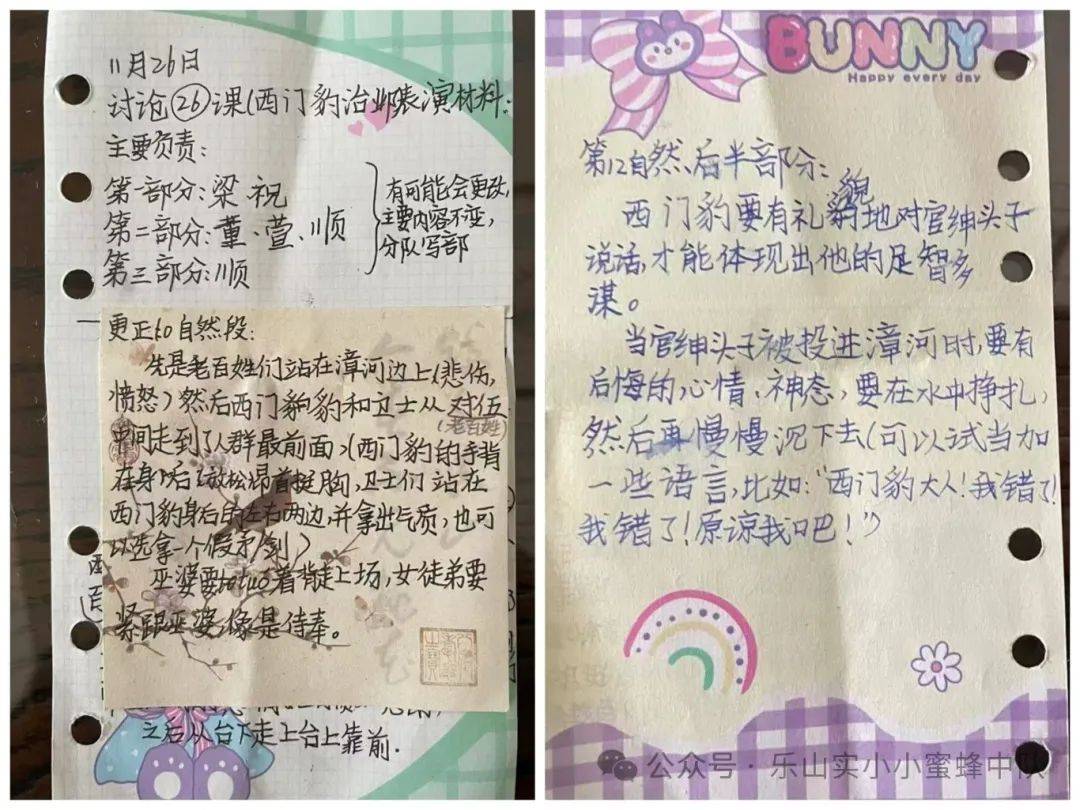 11月26日
讨论㉖课(西门豹治邺)表演材料:
主要负责:
第一部分:梁 祝
第二部分:董、萱、顺
第三部分:顺
有可能会更改,
主要内容不变,
分队写部
更正10自然段:
先是老百姓们站在漳河边上(悲伤,
愤怒)然后西门豹和卫士从对伍
(老百姓)
中间走到了人群最前面,(西门豹的手背
在身后,放松昂首挺胸,卫士们站在
西门豹身后的左右两边,并拿出气质,也可
以选拿一个假矛/剑)
巫婆要tuo着背走上场,女徒弟要
紧跟巫婆,像是侍奉。
之后从台下走上台上靠前.
BUNNY
Happy every day
第12自然,后半部分:
西门豹要有礼貌地对官绅头子
说话,才能体现出他的足智多
谋。
当官绅头子被投进漳河时,要有
后悔的心情、神态,要在水中挣扎,
然后再慢慢沉下去(可以试当加
一些语言,比如:“西门豹大人!我错了!
我错了!原谅我吧!”)
公众号·乐山实小小蜜蜂中队